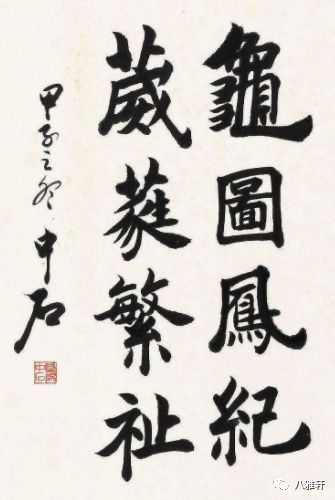 龜圖鳳紀
葳蕤繁祉
甲子之冬 中石
八雅轩